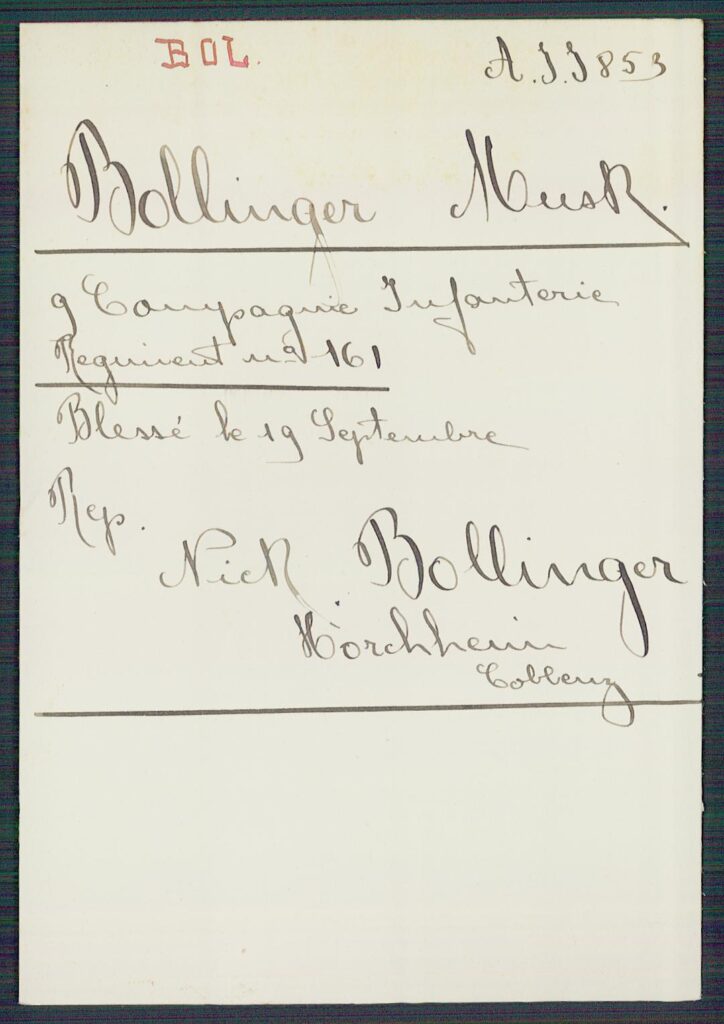 BOL.
A.J.J 853
Bollinger Musk.
9 Compagnie Infanterie
Regiment no 161
Blessé le 19 Septembre
Rep.
Nick Bollinger
Horchheim
Coblenz